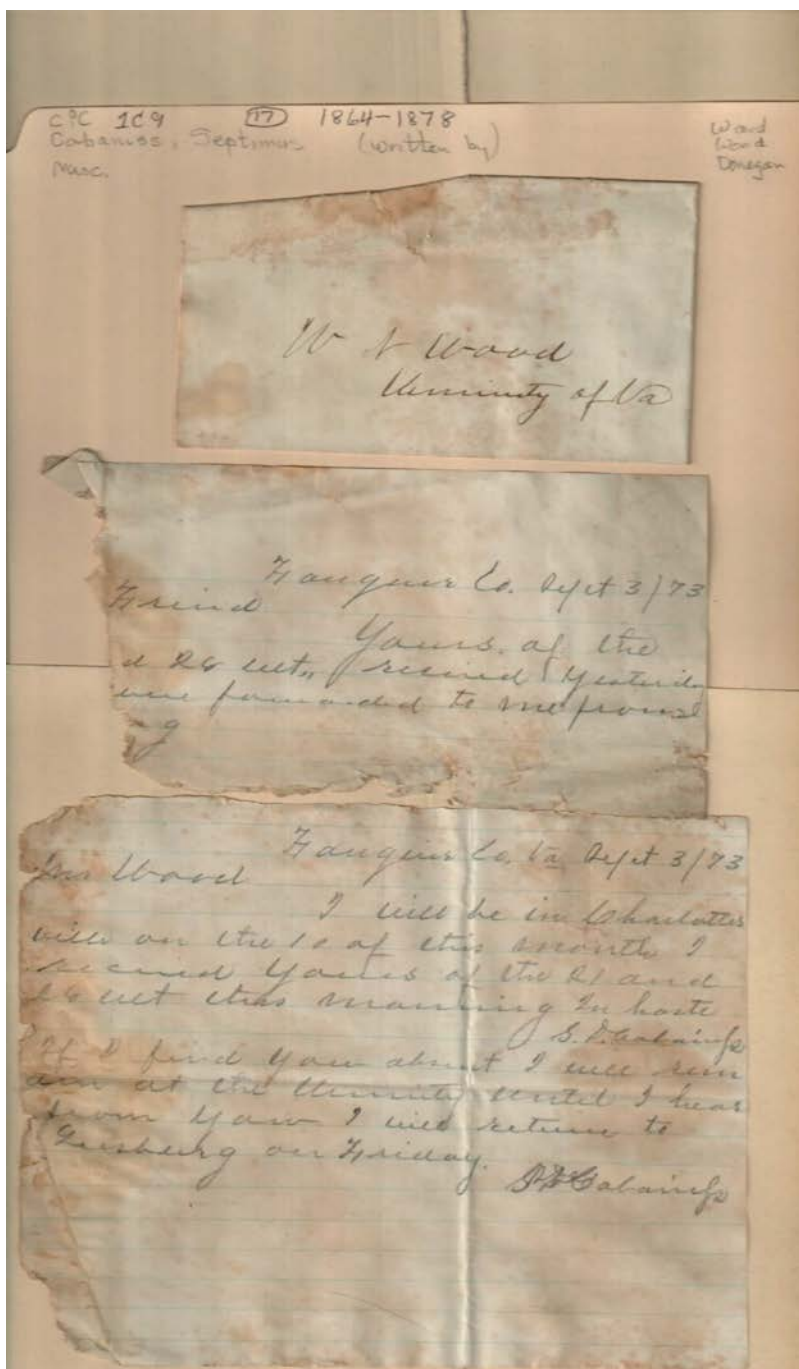 CPC 1C9 17 1864-1878
Cabaniss, Septimus (written by)
Misc.
Ward
Wood
Donegan
W N Wood
University of Va
Fauquier Co. Sept 3/73
Friend
Yours. of the
d 26 ult,, recived Yesterday
were forwarded to me from
g
Fauquier Co. Va Sept 3/73
Mr Wood
I will be in Charlottes
ville on the 10 of this month I
recived Yours of the 21 and
26 ult this morning In haste
S. D. Cabaniss
If I find You absent I will
at the University Until I hear
from You I will return to
Leesburg on Friday.
S D Cabaniss